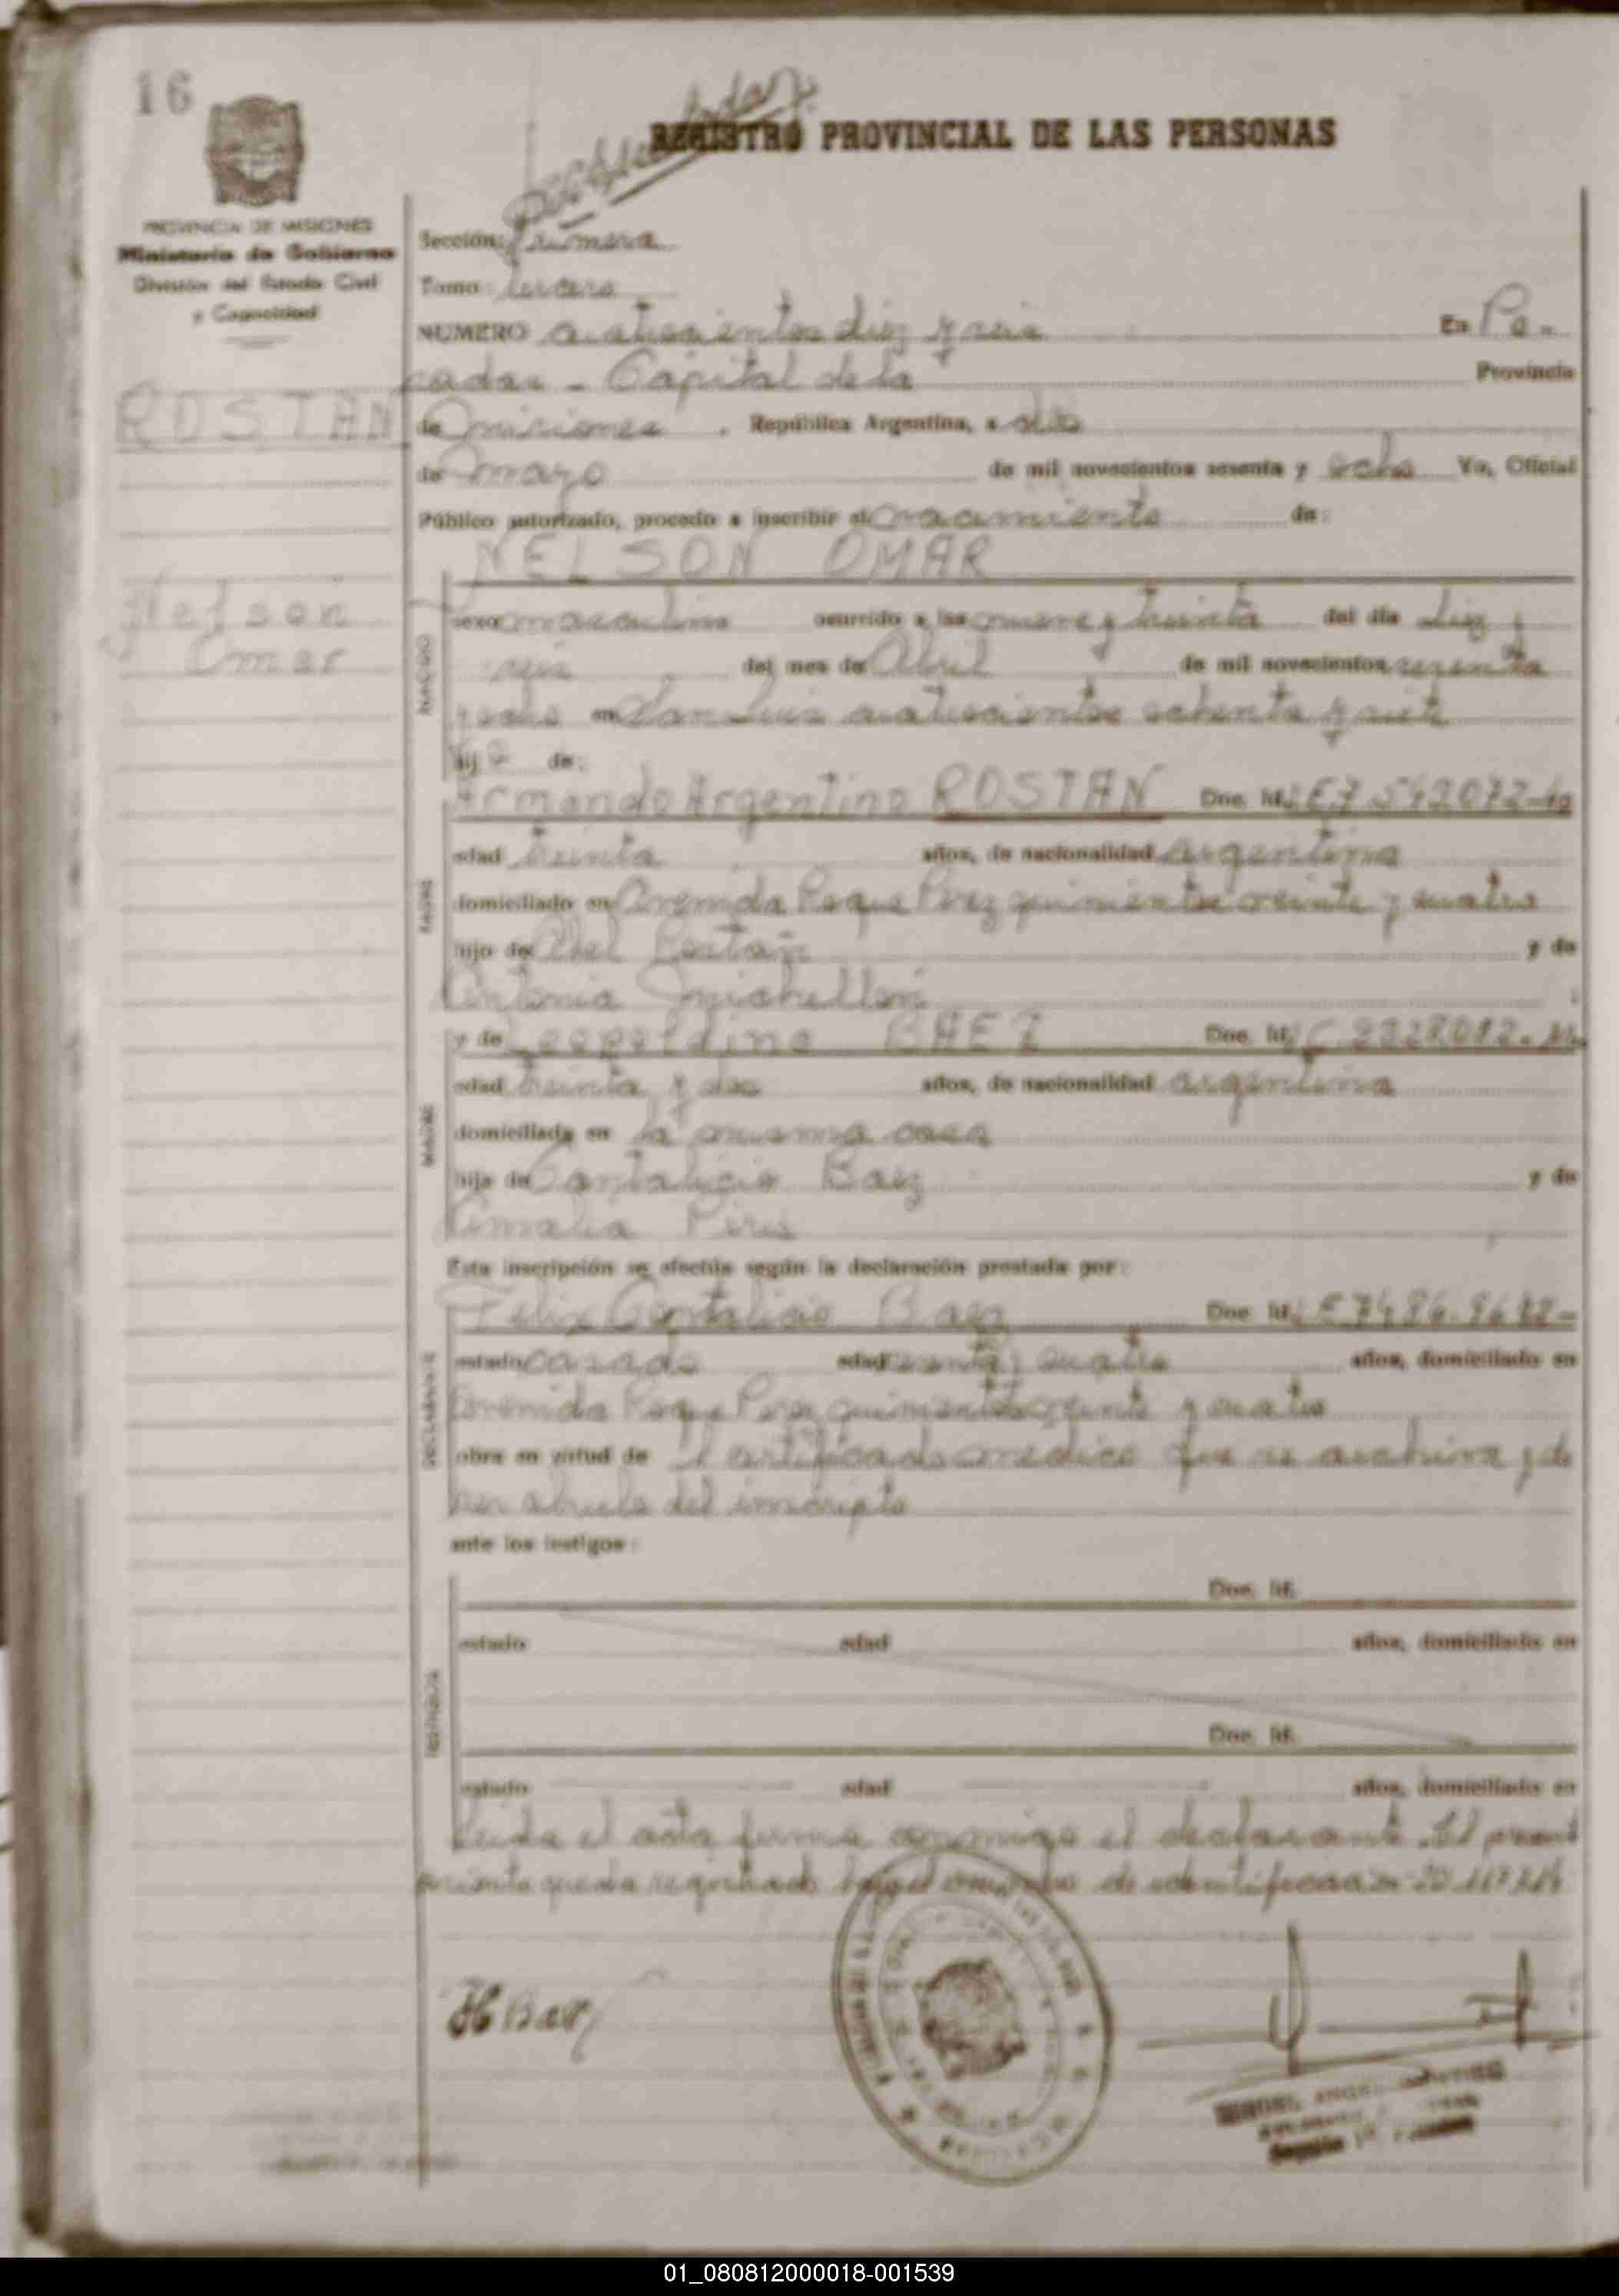 16
REGISTRO PROVINCIAL DE LAS PERSONAS
PROVINCIA DE MISIONES
Ministerio de Gobierno
División del Estado Civil
y Capacidad
Sección: Primera
Tomo: tercero
NUMERO cuatrocientos diez y seis En Po-
sadas - Capital de la Provincia
ROSTAN
de Misiones, República Argentina, a
de mayo de mil novecientos sesenta y ocho Yo, Oficial
Público autorizado, procedo a inscribir el nacimiento de:
NELSON OMAR
Nelson
Omar
NACIDO
sexo masculino ocurrido a las nueve y treinta del día diez y
seis del mes de Abril de mil novecientos sesenta
y ocho en San Luis cuatrocientos ochenta y siete
hijo de:
Armando Argentino ROSTAN Doc. Id.
PADRE
edad treinta años, de nacionalidad argentina
domiciliado en Avenida Roque Perez quinientos veinte y cuatro
hijo de Abel Rostan y de
Antonia Michellon
y de Leopoldina BAEZ Doc. Id.
MADRE
edad treinta y dos años, de nacionalidad argentina
domiciliada en la misma casa
hija de Cantalicio Baez y de
Amalia Piris
Esta inscripción se efectúa según la declaración prestada por:
Felix Cantalicio Baez Doc. Id.
DECLARANTE
estado casado edad y cuatro años, domiciliado en
Avenida Roque Perez quinientos veinte y cuatro
obra en virtud de el certificado medico que se archiva y de
ser abuelo del inscripto
ante los testigos:
TESTIGOS
Doc. Id.
estado edad años, domiciliado en
Doc. Id.
estado edad años, domiciliado en
Leida el acta firma conmigo el declarante. El presente
asiento queda registrado bajo el numero de identificacion
01_080812000018-001539